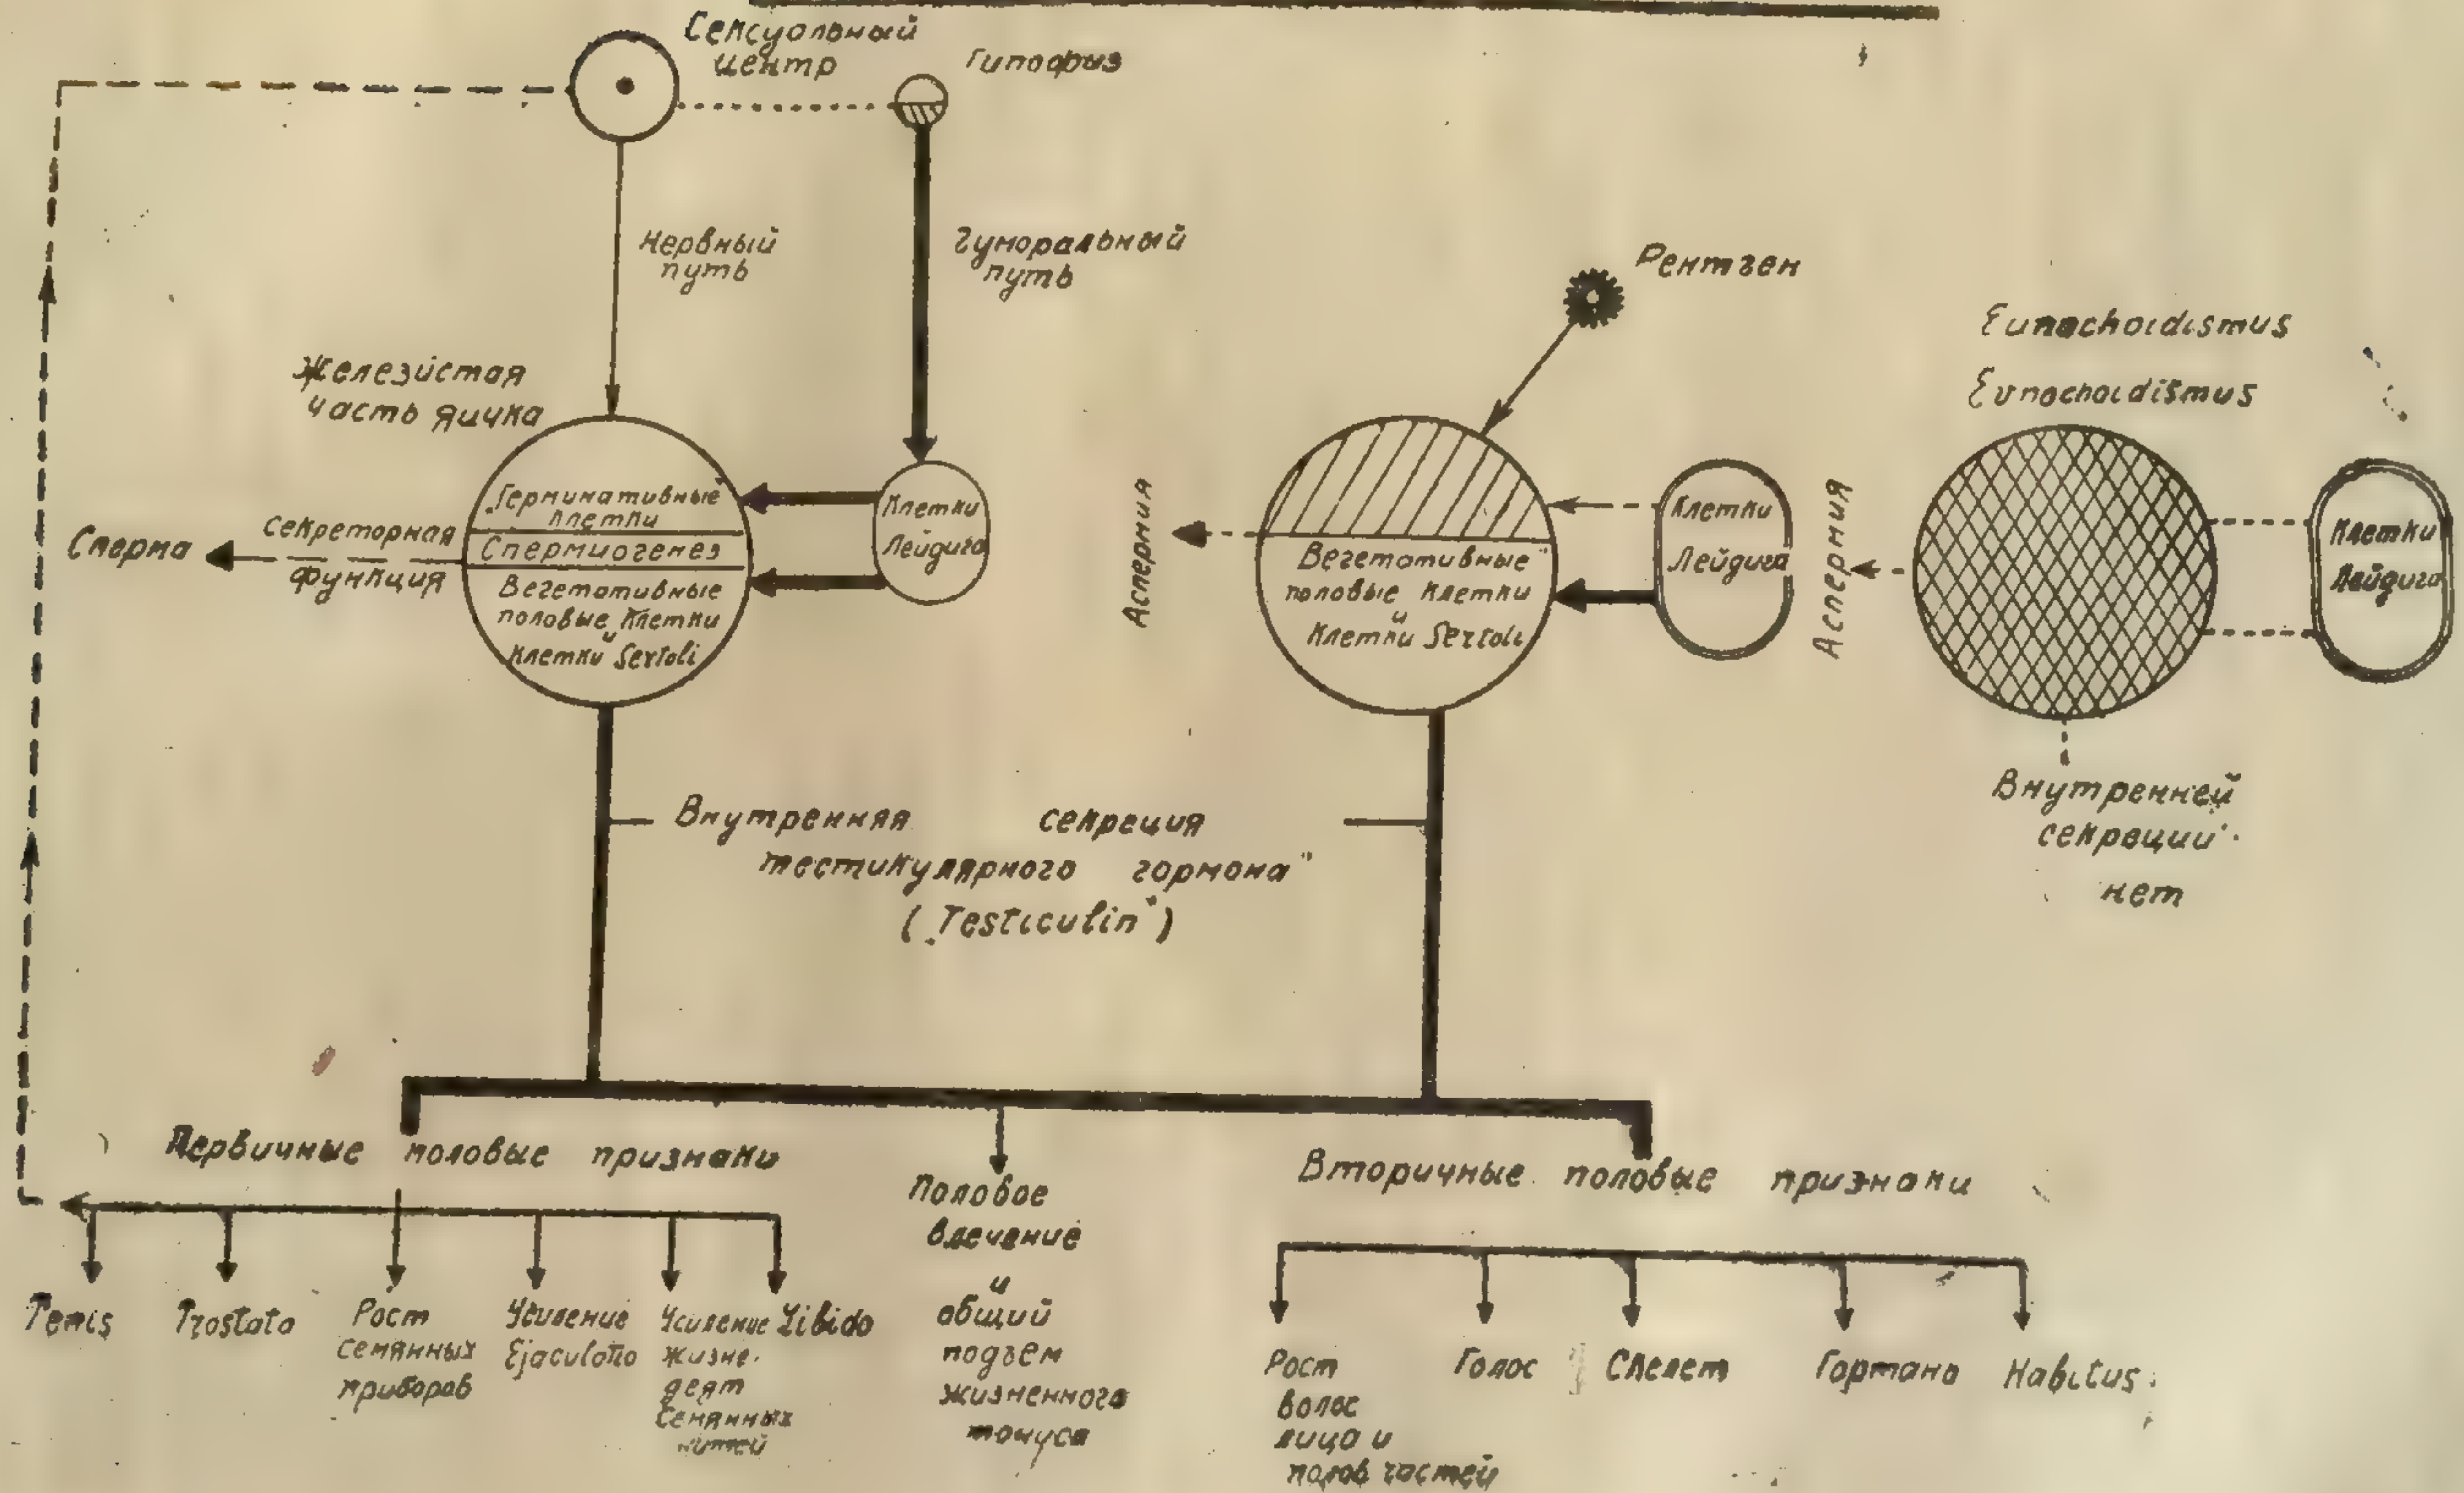 Сексуальный
центр
Гипофиз
Нервный
путь
Гуморальный
путь
Рентген
Eunochoidismus
Eunochoidismus
Железистая
часть яичка
„Герминативные"
клетки
Спермиогенез
Вегетативные
половые клетки
и
клетки Sertoli
Клетки
Лейдига
Сперма
секреторная
функция
Аспермия
Вегетативные"
половые клетки
и
клетки Sertoli
Клетки
Лейдига
Аспермия
Клетки
Лейдига
Внутренней
секреции
нет
Внутренняя секреция
тестикулярного гормона"
(„Testiculin")
Первичные половые признаки
Половое
влечение
и
общий
подъем
жизненного
тонуса
Вторичные половые признаки
Penis
Prostata
Рост
семянных
приборов
Усиление
Ejaculatio
Усиление
жизне-
деят
Семянных
нитей
Libido
Рост
волос
лица и
полов частей
Голос
Скелет
Гортань
Habitus